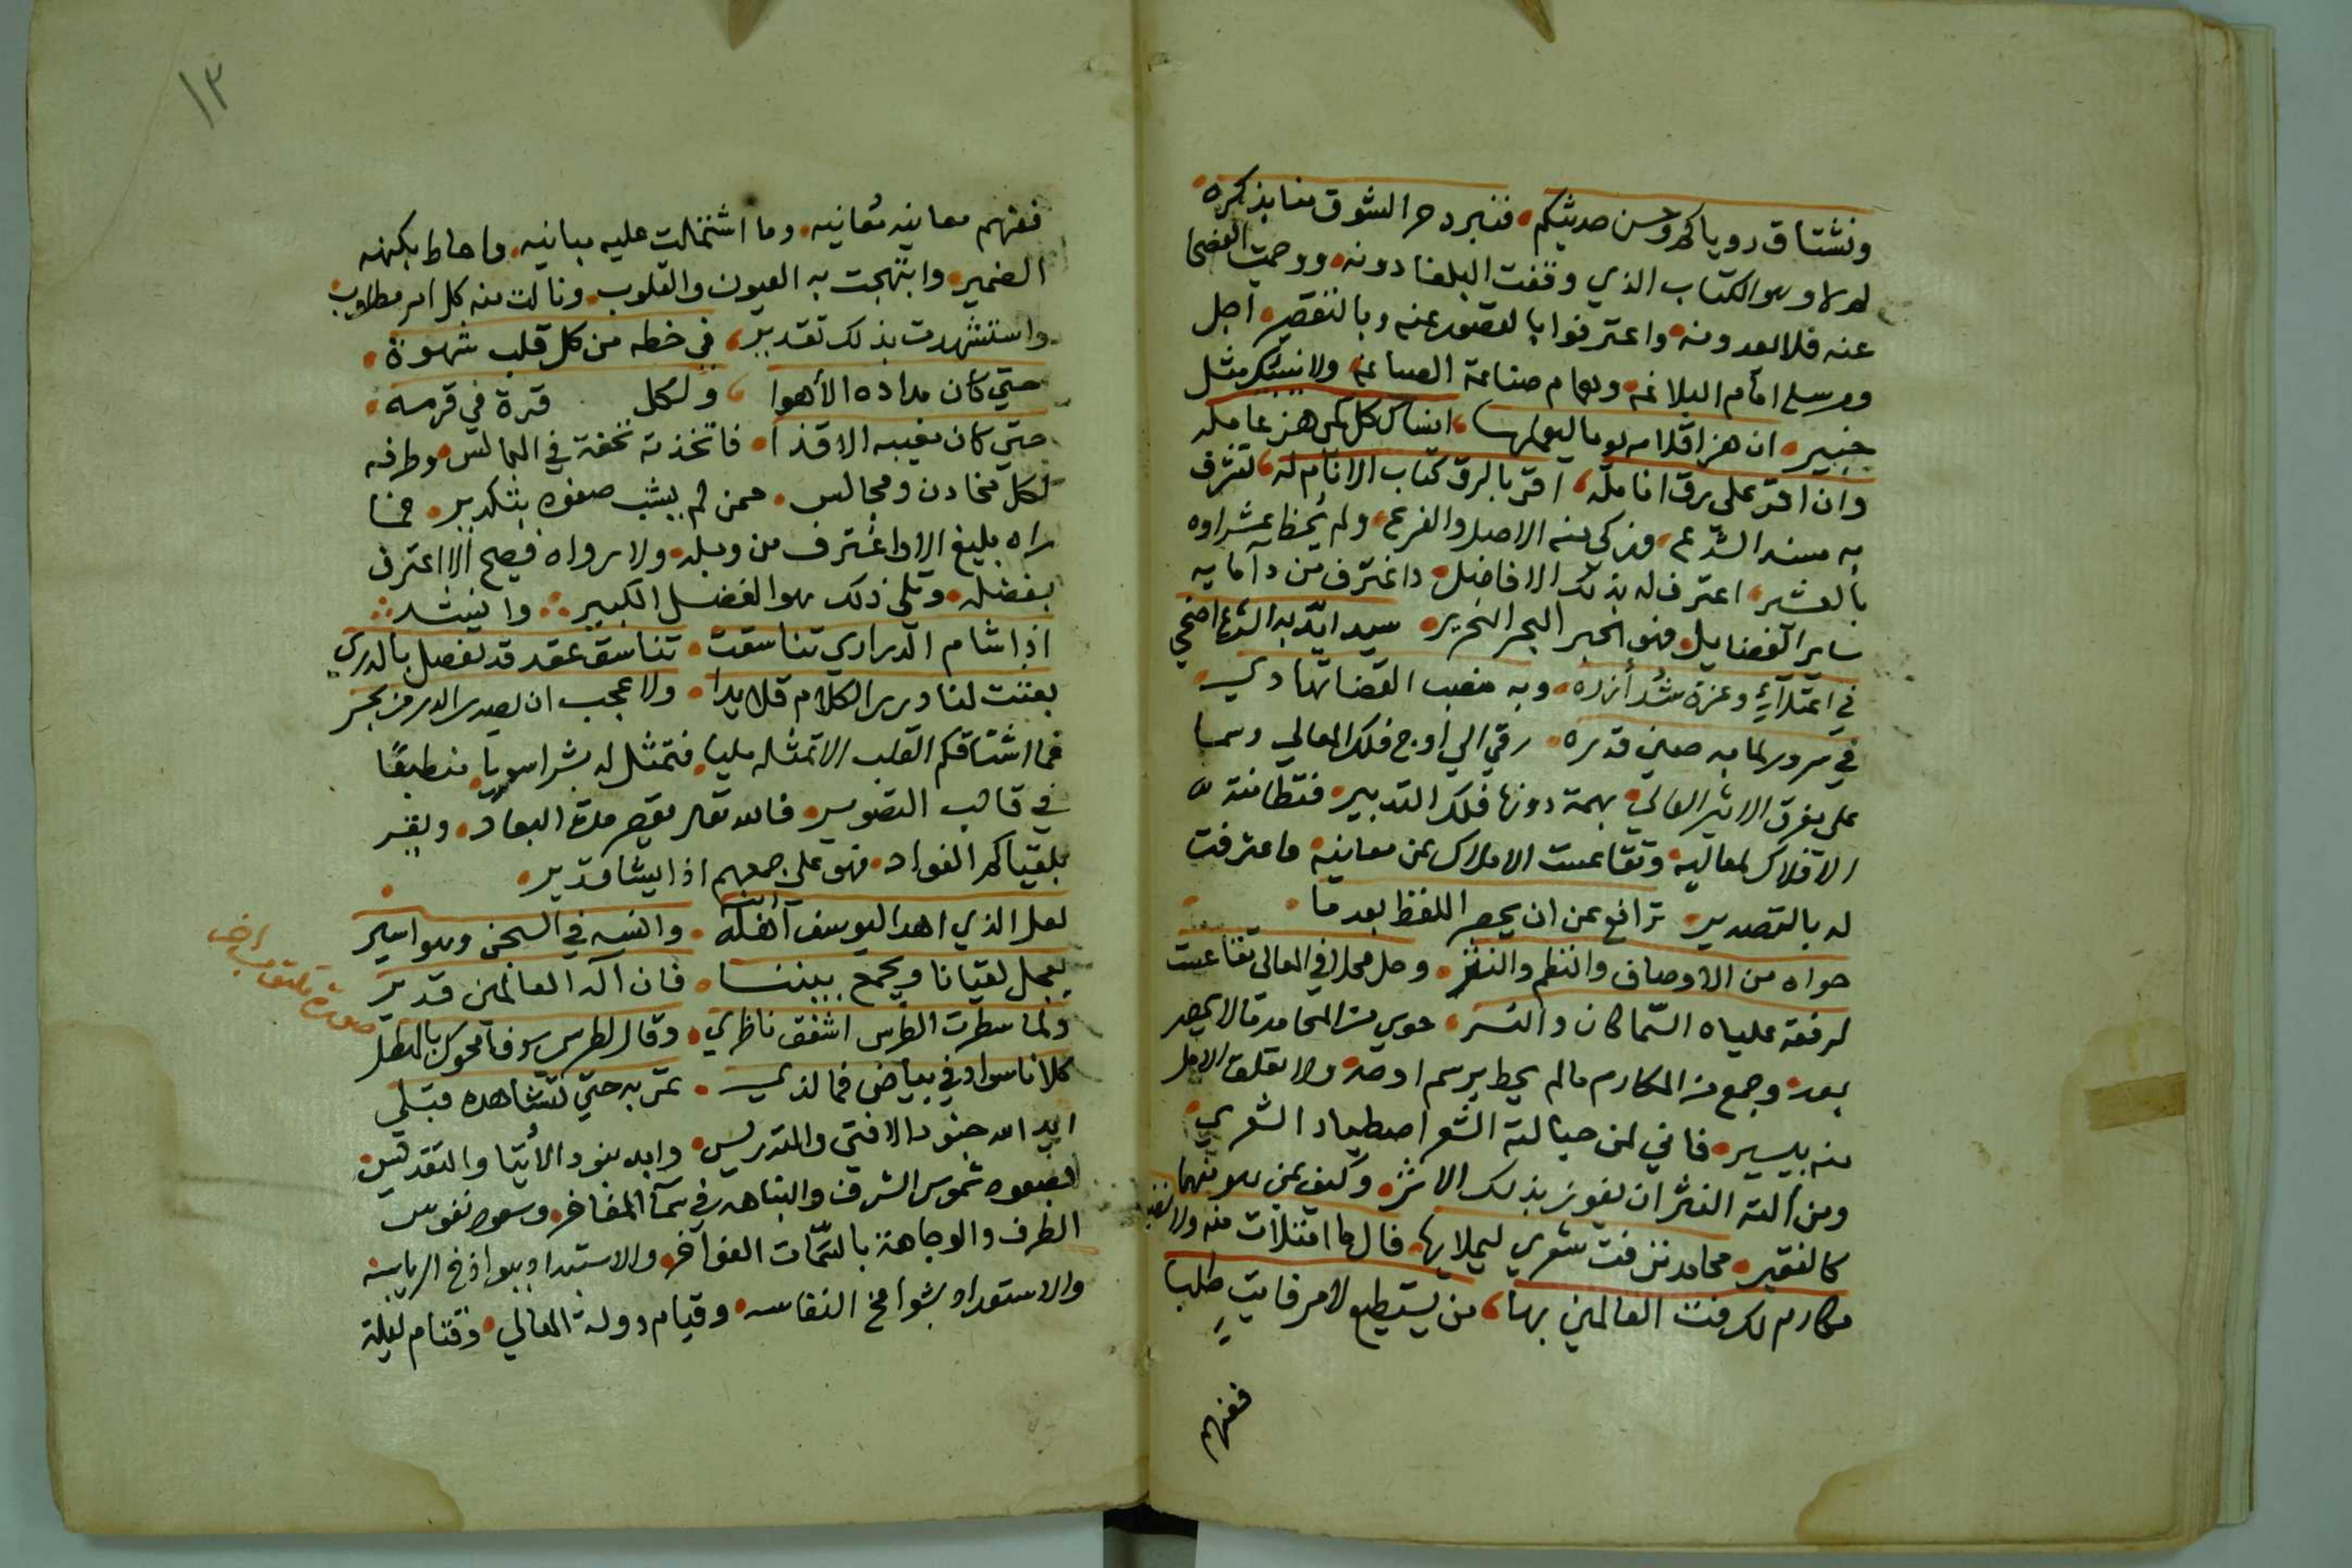 ونشتاق روياكم وحسن حديثكم فنبرد حر الشوق منا بذكره
وهو الكتاب الذي وقفت البلغا دونه
عنه فلا يعدونه واعترفوا بالقصور عنه وبالتقصير اجل
امام البلاغه وهمام صناعة الصياغه ولا ينبئك مثل
خبير ان هز اقلامه يوما ليعملها انساك كل كمي هز عامله
وان اقر على رق انامله اقر بالرق كتاب الانام له تشرف
به مسند الشرع وزكى منه الاصل والفرع ولم يحظ
بالعشير اعترف له بذلك الافاضل واغترف من
ساير الفضايل فهو الحبر البحر النحرير سيد ايد به الشرع اضحى
في اعتلاء وعزة شد أزره وبه منصب القضا تهادى
في سرور لما به صين قدره رقي الى أوج فلك المعالي وسما
على مفرق الاثير العالي بهمة دونها فلك التدبير
الافلاك لمعاليه وتقاعست الاملاك عن معانيه واعترفت
له بالتصدير ترافع عن ان يحصر اللفظ بعد ما
حواه من الاوصاف والنظم والنثر وحل محلا في المعالي تقاعست
لرفعة علياه السماكان والنسر حوى من المحامد مالا يحصر
بعد وجمع من المكارم مالم يحط برسم او حد ولا تعلق الامل
منه بيسير فاني لمن حبالته الشعر اصطياد الشعرى
ومن ألته النثر ان يفوز بذلك الاثر وكيف عن
كالفقير محامد نزفت شعري ليملأ بها فال ما امتلات منه ولا
مكارم لك فتت العالمين بها من يستطيع لامر فايت طلبا
ففهم
١٣
ففهم معاينه معانيه وما اشتملت عليه مبانيه واحاط بكنهه
الضمير وابتهجت به العيون والقلوب ونالت منه كل امر مطلوب
واستشهدت بذلك تقدير في خطه من كل قلب شهوة
حتي كان مداده الأهوا ولكل قرة في قربه
حتي كان مغيبه الاقذا فاتخذته تحفة في المجالس وطرفه
لكل مخادن ومجالس ممن لم يشب صفوه بتكدير فما
راه بليغ الا واغترف من وبله ولا رواه فصيح الا اعترف
بفضله وتلى ذلك هو الفضل الكبير وانشد
اذا شام الدراري تناسقت تناسق عقد قد تفصل بالدر
بعثت لنا درر الكلام قلايدا ولا عجب ان يصدر الدر من بحر
فما اشتاقكم القلب الا تمثله مليا فتمثل له بشرا سويا منطبعًا
في قالب التصوير فالله تعالى يقصر مدة البعاد ويقر
بلقياكم الفواد فهو على جمعهم اذا يشا قدير
لعل الذي اهدا ليوسف اهله وانسه في السجن وهو اسير
يعجل لقيانا ويجمع بيننا فان اله العالمين قدير
ولما سطرت الطرس اشفق ناظري وقال لطرسي سوف امحوك بالطل
كلانا سواد في بياض فما لذي تمر به حتي تشاهده قبلي
ايد الله جنود الافتى والتدريس وابد بنود الأتقيا والتقديس
بصعود شموس الشرف والنباهه في سما المفاخر وسعود نفوس
الطرف والوجاهة بالسمات الفواخر والاستبداد ببواذخ الرياسه
والاستعداد بشوامخ النفاسه وقيام دولة المعالي وقتام ليلة